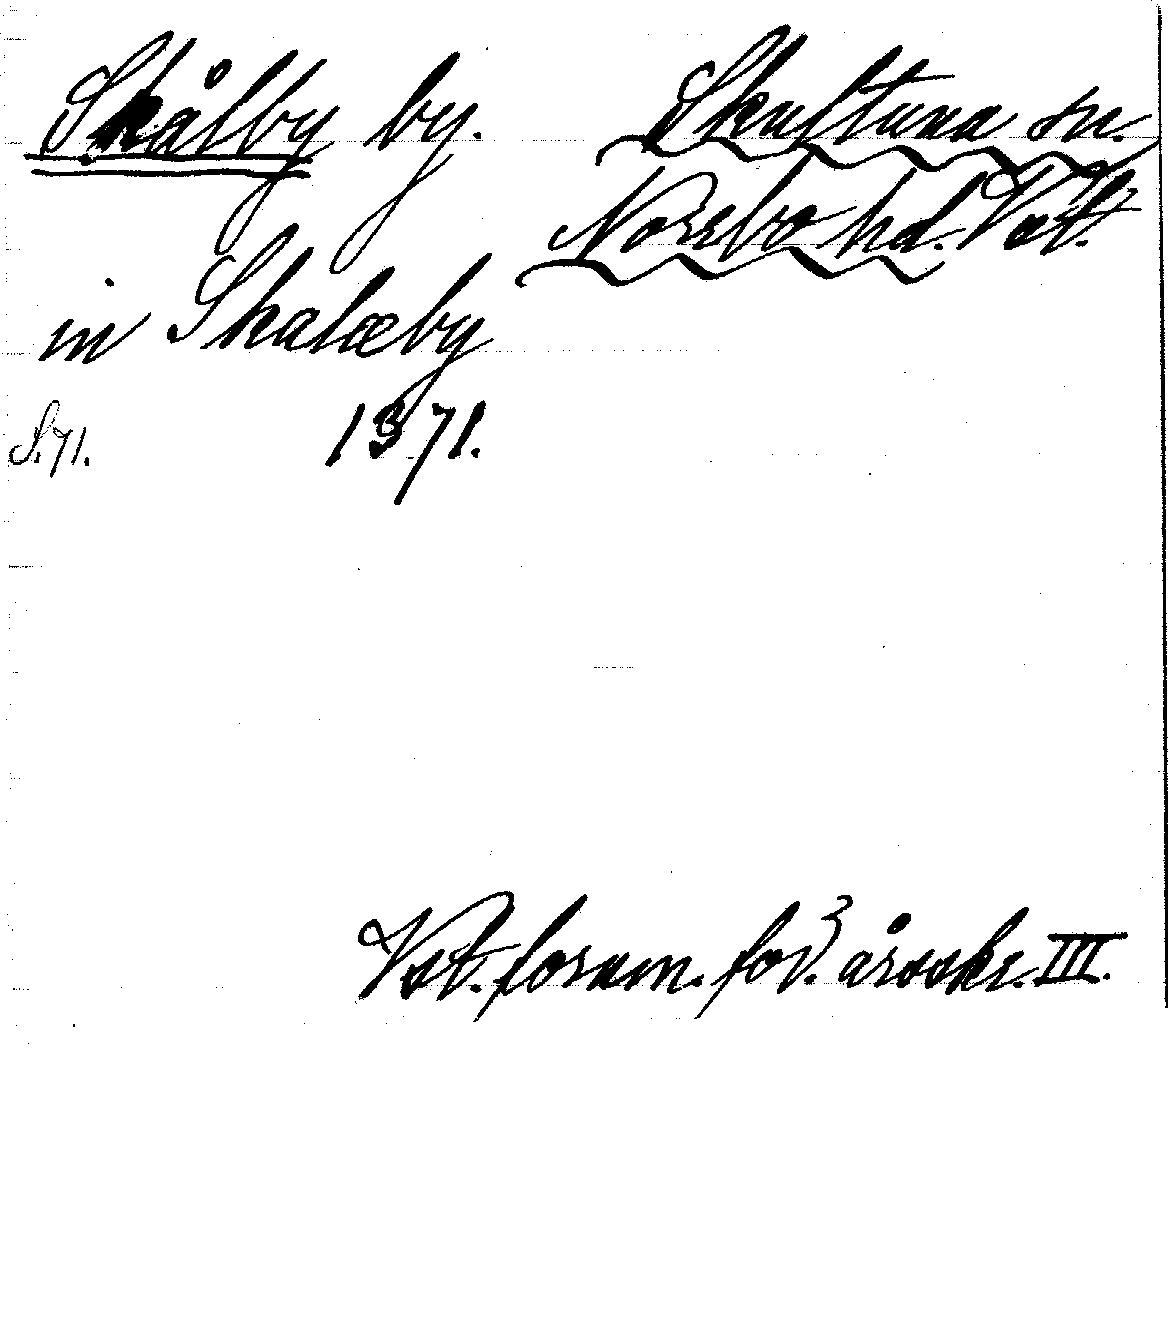 Skålby by. Skultuna sn.
Norrbo hd. Vstl.
in Skalæby
S. 71. 1371.
Vst. fornm. för. årsskr. III.